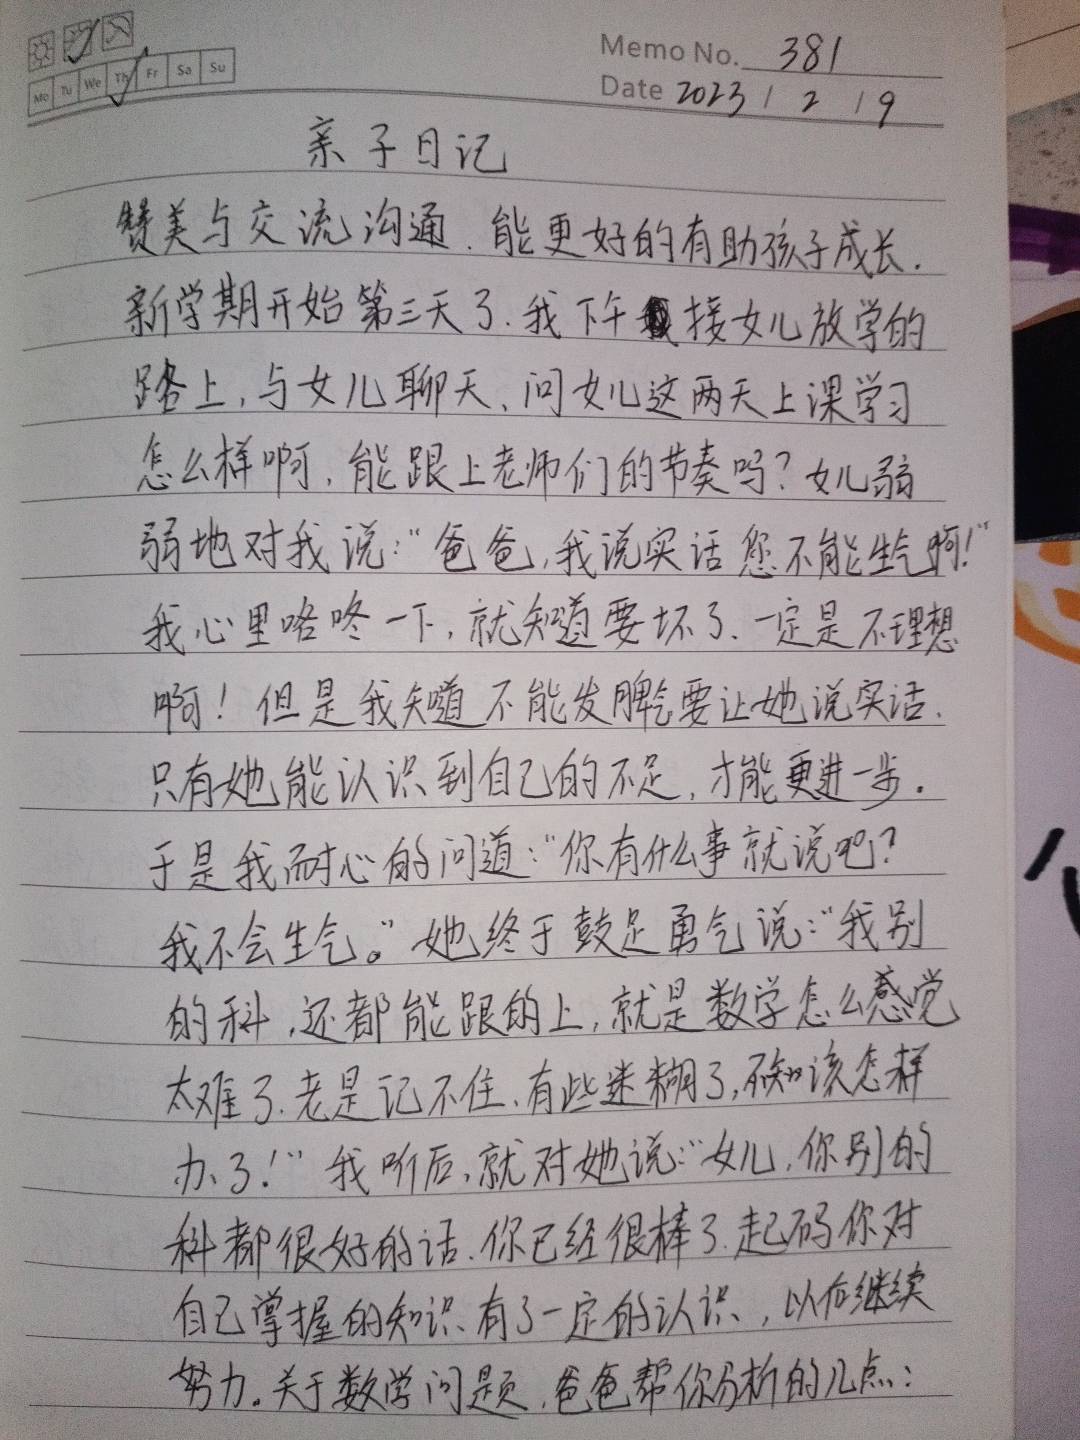 Memo No. 381
Mo Tu We Th Fr Sa Su
Date 2023 / 2 / 9
亲子日记
赞美与交流沟通.能更好的有助孩子成长.
新学期开始第三天了.我下午接女儿放学的
路上,与女儿聊天、问女儿这两天上课学习
怎么样啊,能跟上老师们的节奏吗?女儿弱
弱地对我说:“爸爸,我说实话您不能生气啊!”
我心里咯咚一下,就知道要坏了、一定是不理想
啊!但是我知道不能发脾气要让她说实话、
只有她能认识到自己的不足,才能更进一步.
于是我耐心的问道:“你有什么事就说吧?
我不会生气。”她终于鼓足勇气说:“我别
的科,还都能跟的上,就是数学怎么感觉
太难了.老是记不住、有些迷糊了,不知该怎样
办了!”我听后,就对她说:“女儿,你别的
科都很好的话、你已经很棒了、起码你对
自己掌握的知识、有了一定的认识、,以后继续
努力。关于数学问题、爸爸帮你分析的几点: